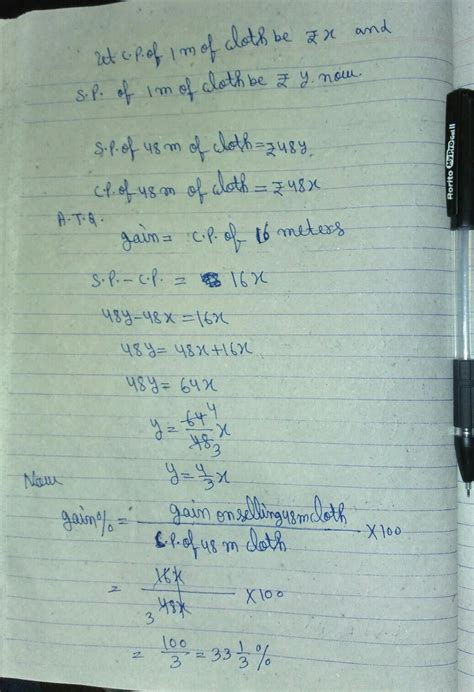 Let C.P. of 1 m of cloth be ₹ x and
S.P. of 1 m of cloth be ₹ y. now
S.P. of 48 m of cloth = ₹48y
C.P. of 48 m of cloth = ₹48x
A.T.Q.
gain = C.P. of 16 meters
S.P. - C.P. = 16x
48y-48x = 16x
48y = 48x+16x
48y = 64x
y = 64 4 / 48 3 x
y = 4/3 x
Now
gain% = gain on selling 48m cloth / C.P. of 48 m cloth X 100
= 16x / 3 48x X 100
= 100/3 = 33 1/3 %
Rorito MyProcell